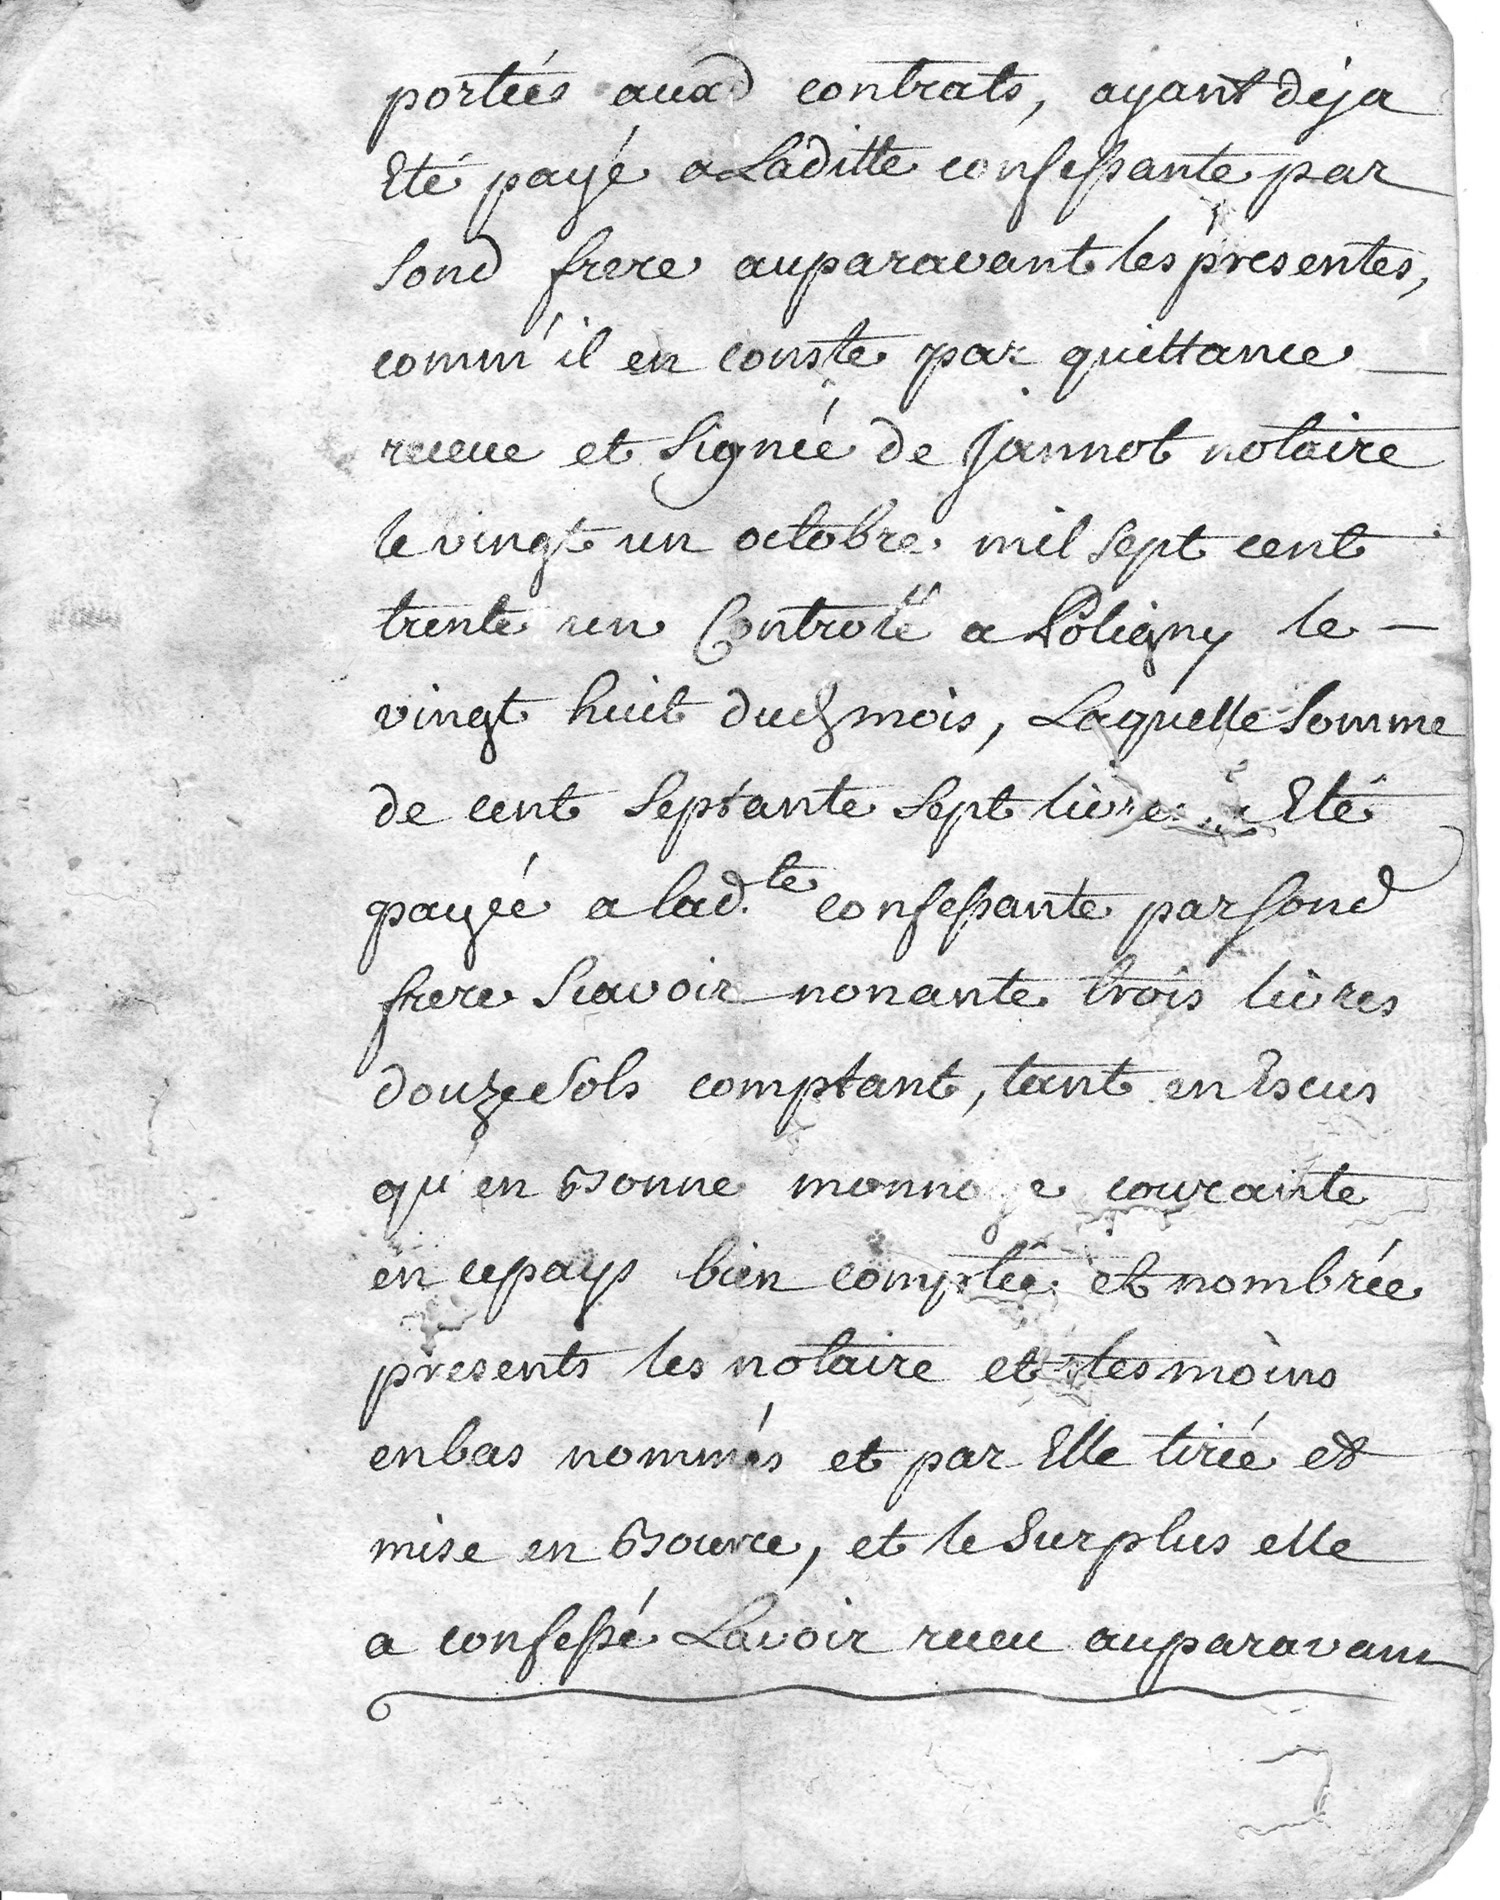 portées auxd contrats, ayant deja
Eté payé a Laditte confessante par
sond frere auparavant les presentes,
comm'il en conste par quittance
receue et signée de Jannot notaire
le vingt un octobre mil sept cent
trente un Controlé a Poligny le
vingt huit dud mois, Laquelle somme
de cent septante sept livres a Eté
payéé a lad.te confessante par sond
frere scavoir nonante trois livres
douze sols comptant, tant en Escus
qu'en bonne monnoye courante
en ce pays bien comptée et nombrée
presents les notaire et tesmoins
en bas nommés et par Elle tirée et
mise en bource, et le surplus elle
a confessé Lavoir receu auparavant